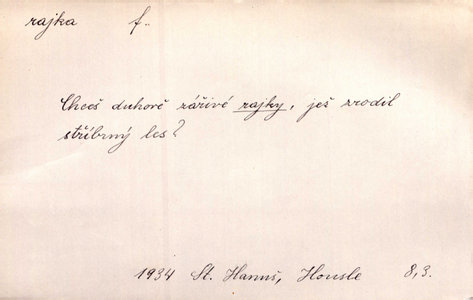 rajka f.
Chceš duhově zářivé rajky, jež zrodil
stříbrný les?
1934 St. Hanuš, Housle 8,3.